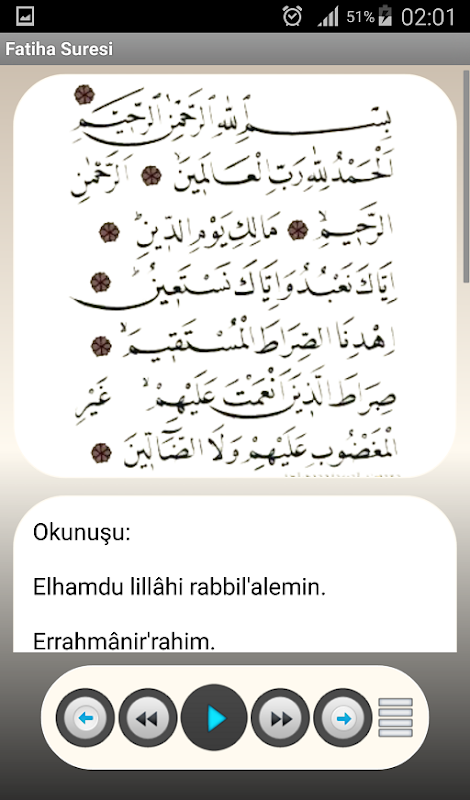 51% 02:01
Fatiha Suresi
بِسْمِ اللهِ الرَّحْمٰنِ الرَّحِيمِ
اَلْحَمْدُ لِلّٰهِ رَبِّ الْعَالَمِينَ الرَّحْمٰنِ
الرَّحِيمِ مَالِكِ يَوْمِ الدِّينِ
اِيَّاكَ نَعْبُدُ وَاِيَّاكَ نَسْتَعِينُ
اِهْدِنَا الصِّرَاطَ الْمُسْتَقِيمَ
صِرَاطَ الَّذِينَ اَنْعَمْتَ عَلَيْهِمْ غَيْرِ
الْمَغْضُوبِ عَلَيْهِمْ وَلَا الضَّالِّينَ
Okunuşu:
Elhamdu lillâhi rabbil'alemin.
Errahmânir'rahim.